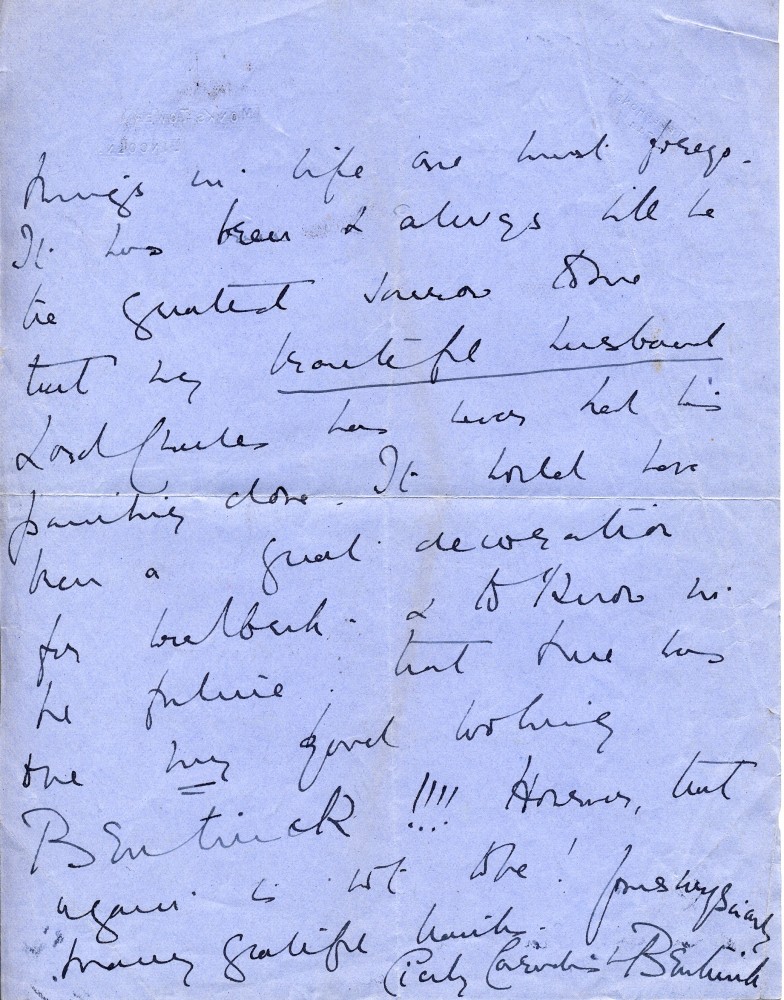 things in life one must forego.
It has been & always will be
the greatest sorrow to me
that my beautiful husband
Lord Charles has never had his
painting done. It would have
been a great decoration
for Welbeck. & to know in
the future that there was
one very good looking
BEntincK !!!! However, that
again is not to be! Yours very sincerely
Many grateful thanks.
Cavendish BEntinck